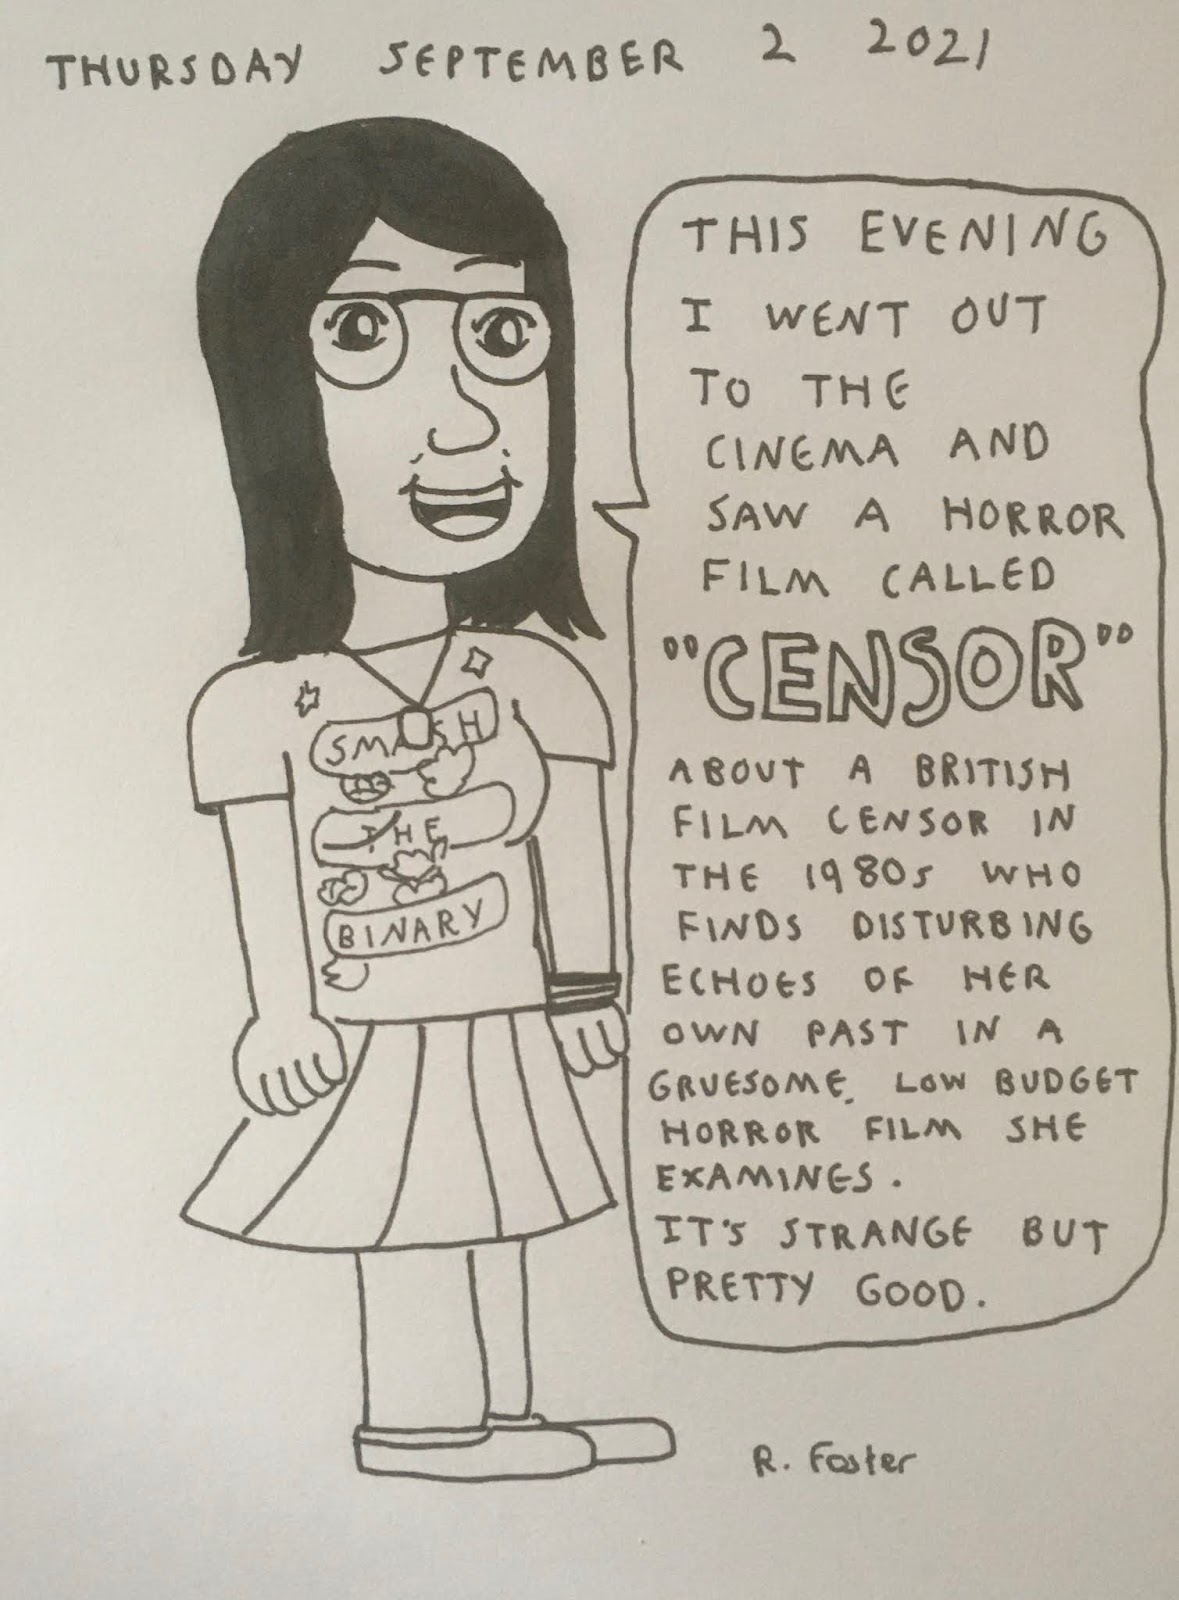 THURSDAY SEPTEMBER 2 2021
THIS EVENING
I WENT OUT
TO THE
CINEMA AND
SAW A HORROR
FILM CALLED
"CENSOR"
ABOUT A BRITISH
FILM CENSOR IN
THE 1980s WHO
FINDS DISTURBING
ECHOES OF HER
OWN PAST IN A
GRUESOME, LOW BUDGET
HORROR FILM SHE
EXAMINES.
IT'S STRANGE BUT
PRETTY GOOD.
SMASH
THE
BINARY
R. Foster